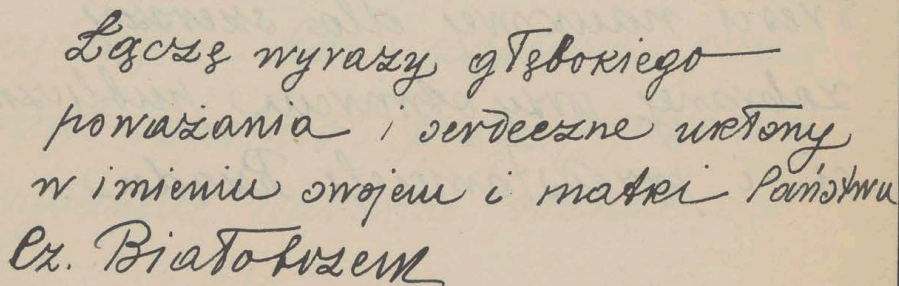 Łączę wyrazy głębokiego
poważania i serdeczne ukłony
w imieniu swojem i matki Państwu
Cz. Białobrzeski